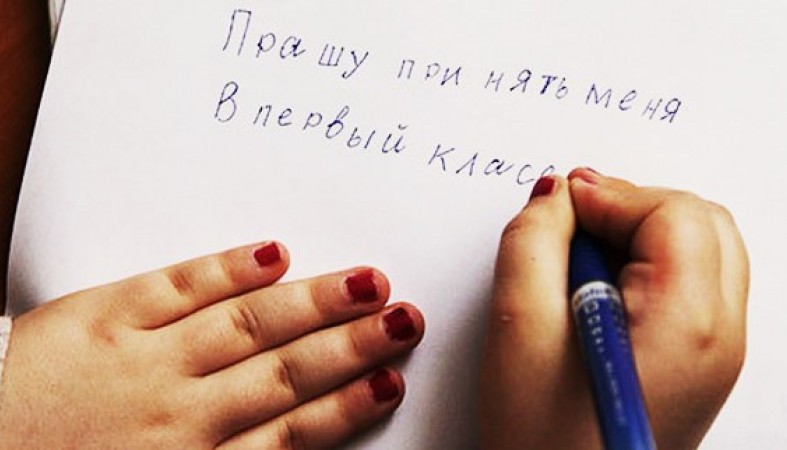 Прашу при нять меня
В первый класс